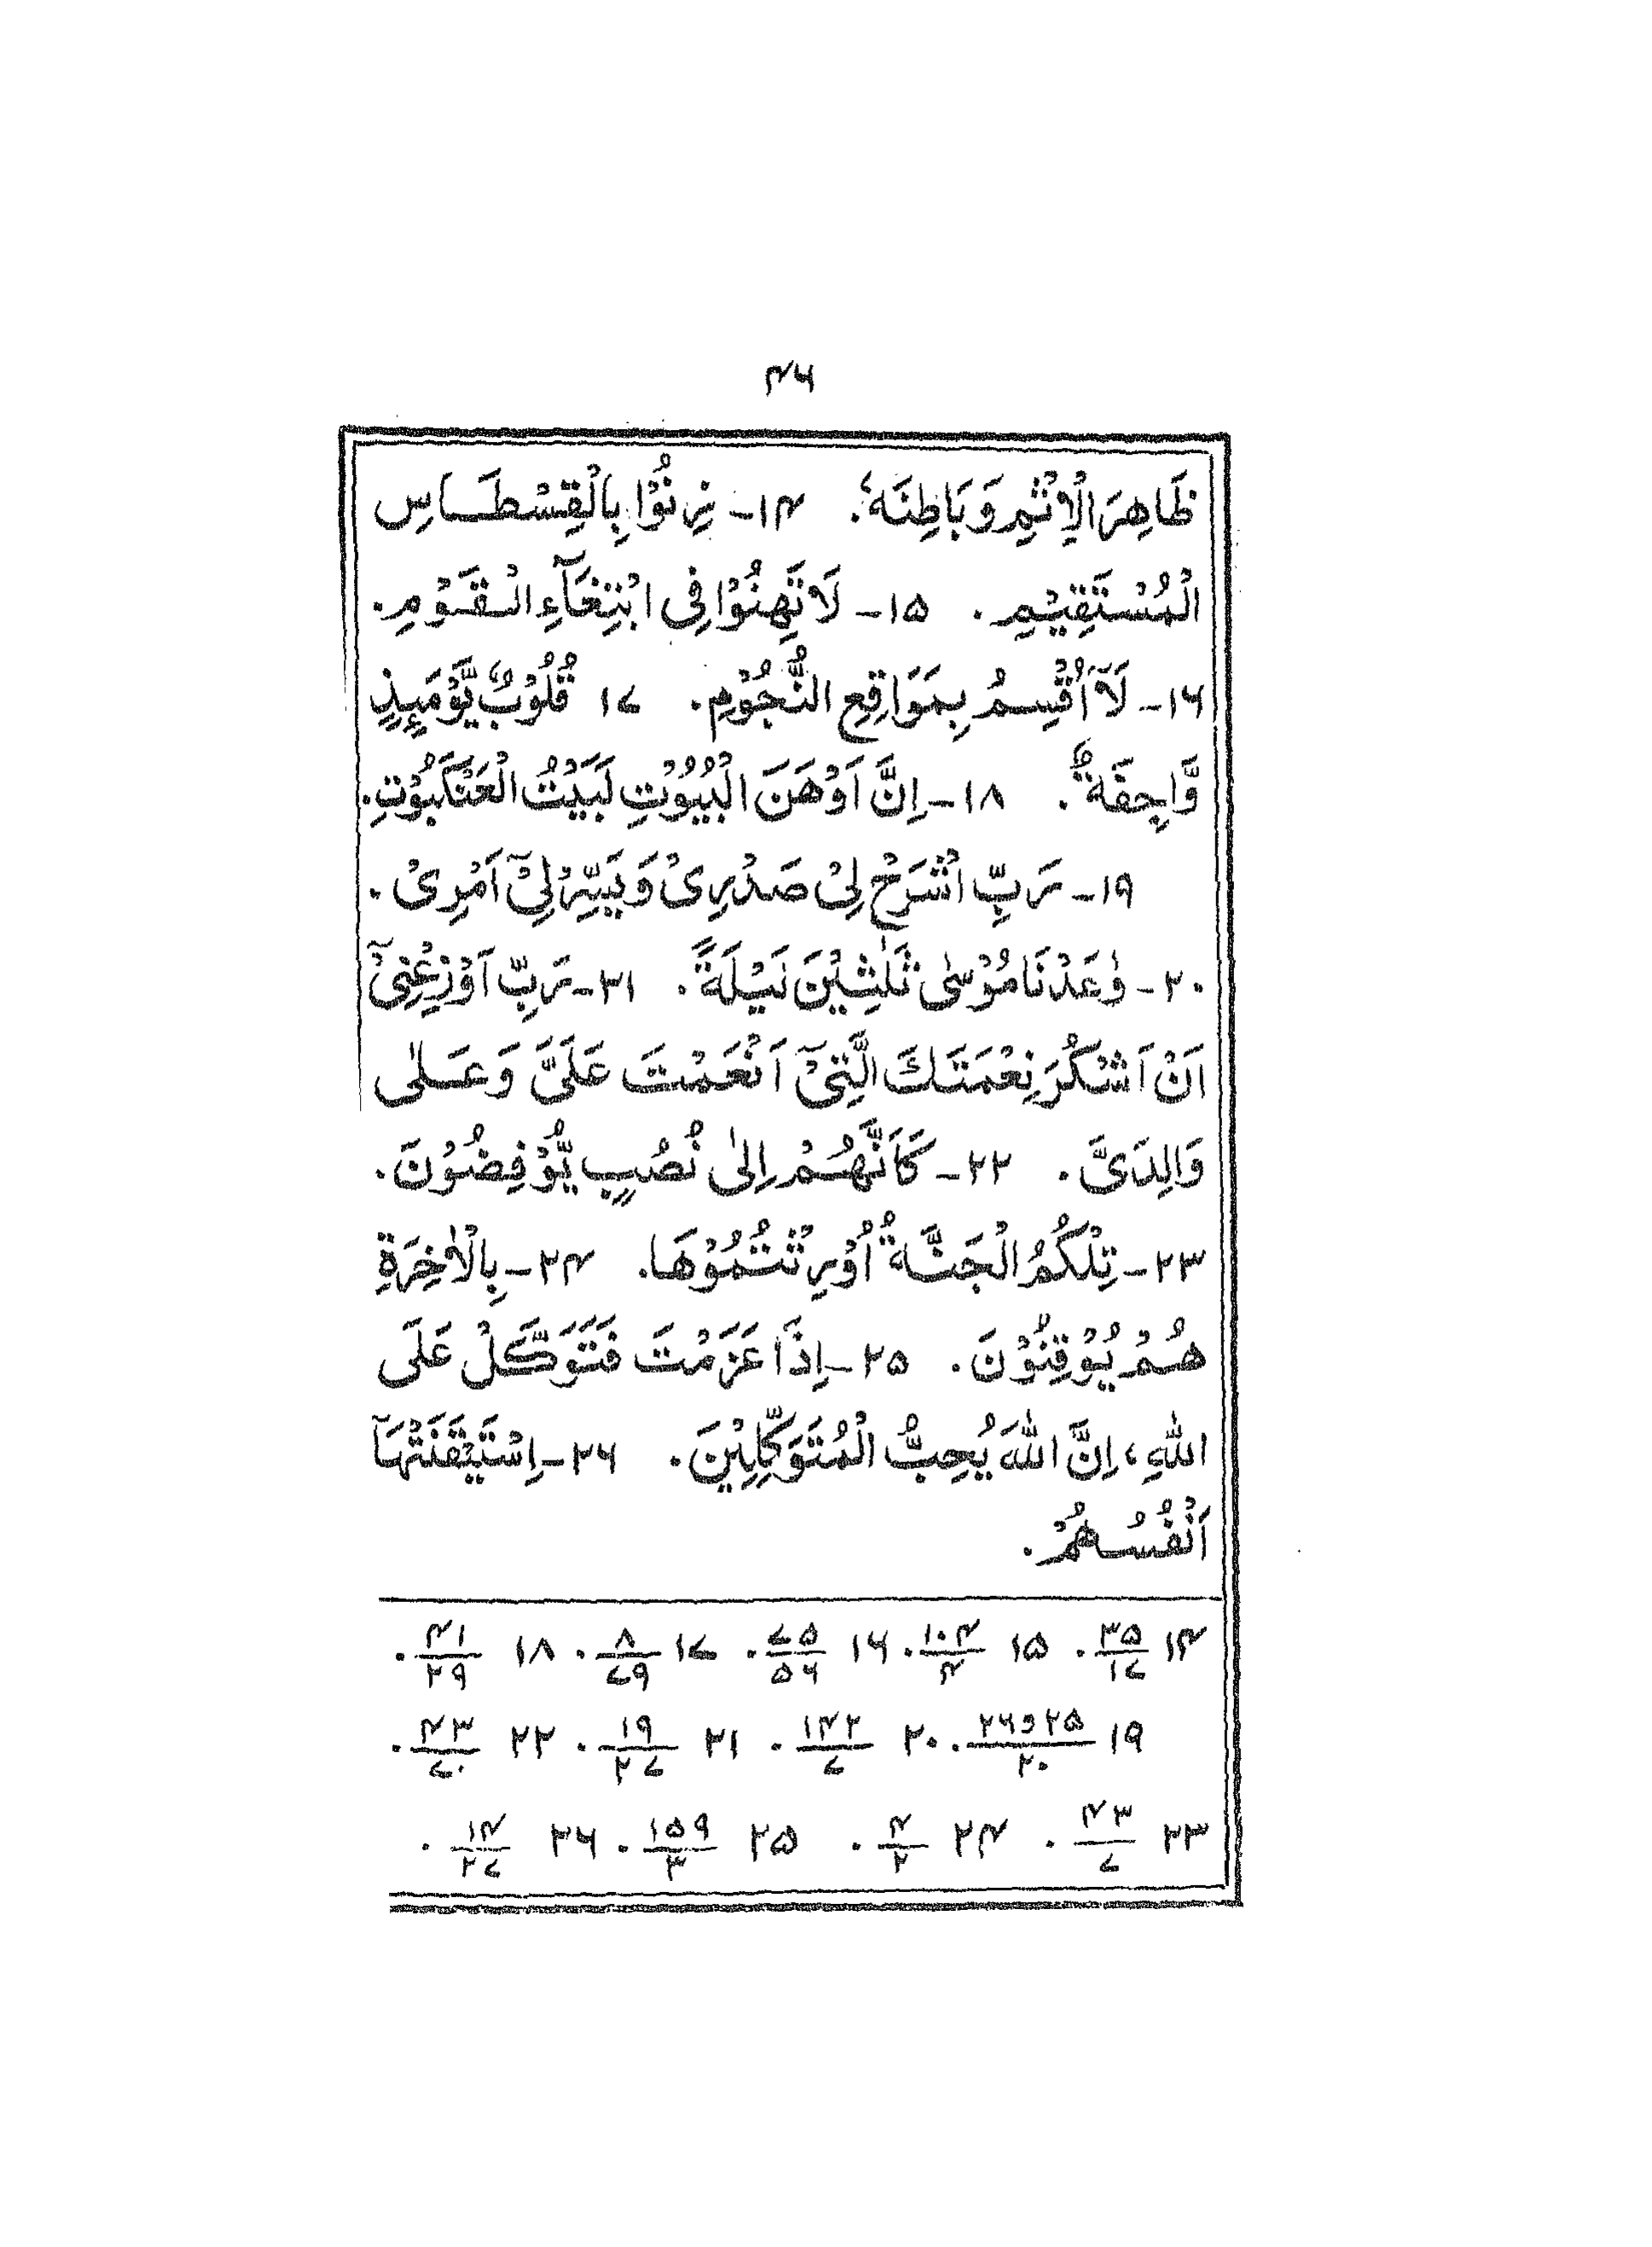 ۴۶
ظَاهِرَ الْاِثْمِ وَ بَاطِنَهٗ. ۱۴- زِنُوْا بِالْقِسْطَاسِ
الْمُسْتَقِيْمِ. ۱۵- لَا تَهِنُوْا فِى ابْتِغَآءِ الْقَوْمِ.
۱۶- لَآ اُقْسِمُ بِمَوَاقِعِ النُّجُوْمِ. ۱۷ قُلُوْبٌ يَّوْمَىِٕذٍ
وَّاجِفَةٌ. ۱۸- اِنَّ اَوْهَنَ الْبُيُوْتِ لَبَيْتُ الْعَنْكَبُوْتِ.
۱۹- رَبِّ اشْرَحْ لِىْ صَدْرِىْ وَ يَسِّرْ لِىْٓ اَمْرِىْ.
۲۰- وٰعَدْنَا مُوْسٰى ثَلٰثِيْنَ لَيْلَةً. ۲۱- رَبِّ اَوْزِعْنِىْٓ
اَنْ اَشْكُرَ نِعْمَتَكَ الَّتِىْٓ اَنْعَمْتَ عَلَىَّ وَ عَلٰى
وَالِدَىَّ. ۲۲- كَاَنَّهُمْ اِلٰى نُصُبٍ يُّوْفِضُوْنَ.
۲۳- تِلْكُمُ الْجَنَّةُ اُوْرِثْتُمُوْهَا. ۲۴- بِالْاٰخِرَةِ
هُمْ يُوْقِنُوْنَ. ۲۵- اِذَا عَزَمْتَ فَتَوَكَّلْ عَلَى
اللّٰهِ، اِنَّ اللّٰهَ يُحِبُّ الْمُتَوَكِّلِيْنَ. ۲۶- اِسْتَيْقَنَتْهَآ
اَنْفُسُهُمْ.
۱۴ ۳۵/۱۷. ۱۵ ۱۰۴/۴. ۱۶ ۷۵/۵۶. ۱۷ ۸/۷۹. ۱۸ ۴۱/۲۹.
۱۹ ۲۵و۲۶/۲۰. ۲۰ ۱۴۲/۷. ۲۱ ۱۹/۲۷. ۲۲ ۴۳/۷۰.
۲۳ ۴۳/۷. ۲۴ ۴/۲. ۲۵ ۱۵۹/۳. ۲۶ ۱۴/۲۷.